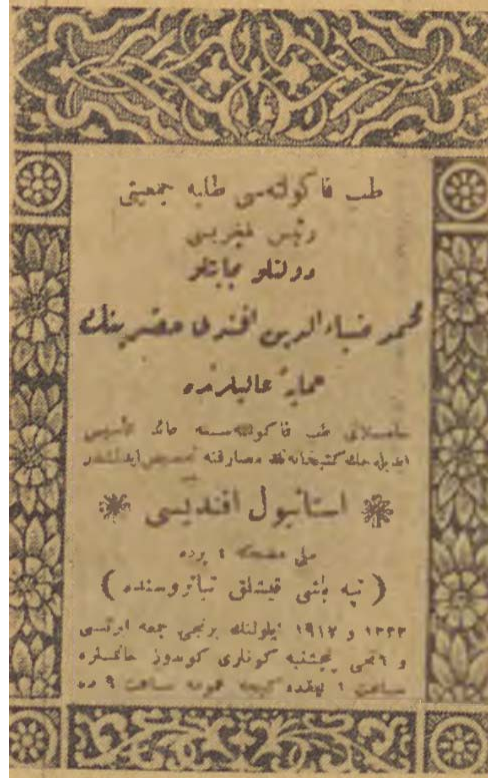 طب فاكولته‌سی طلبه جمعیتی
رئیس فخریسی
دولتلو نجابتلو
محمد ضیاء الدین افندی حضرتلرینك
حمایهٔ عالیلرنده
طب فاكولته‌سنه عائد تأسیس
ایدیله‌جك كتبخانه‌نك مصارفنه تخصیص ایدلمشدر
استانبول افندیسی
ملی مضحكه ٤ پرده
( تپه باشی قیشلق تیاتروسنده )
١٣٣٣ و ١٩١٧ ایلولنك برنجی جمعه ایرتسی
و ٦نجی پنجشنبه كونلری كوندوز خانملره
ساعت ١ بچقده كیجه عمومه ساعت ٩ ده